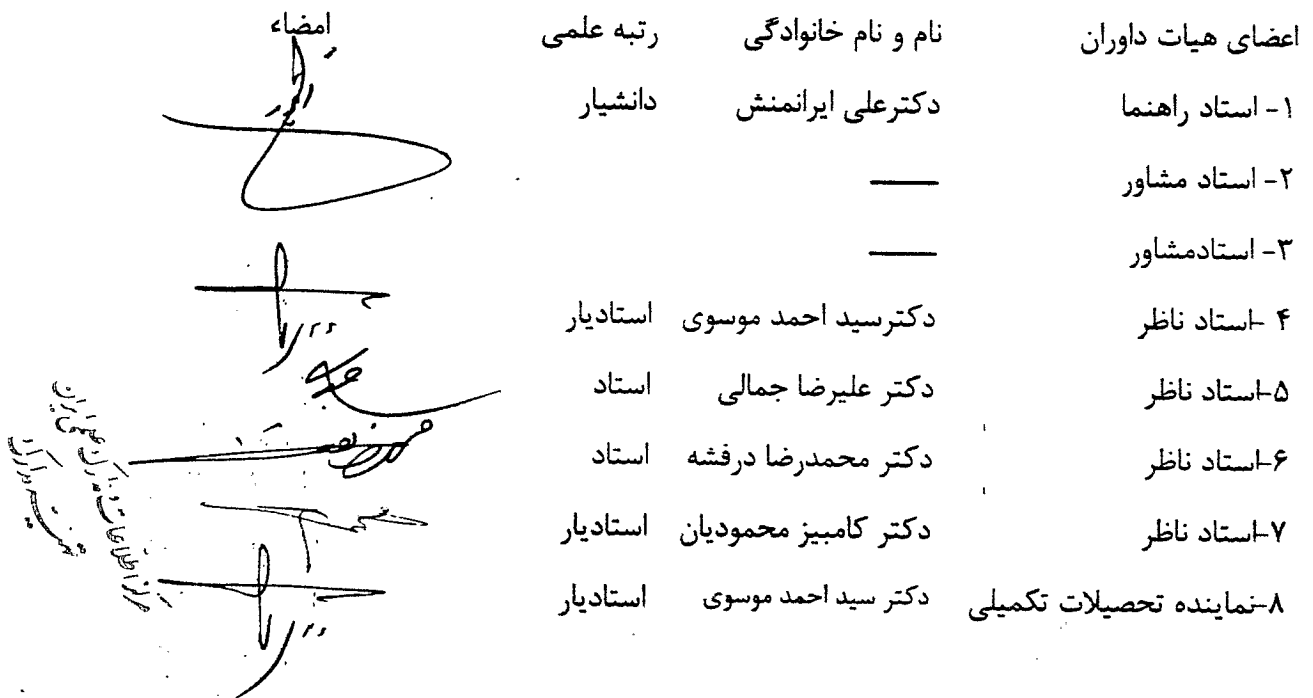 اعضای هیات داوران نام و نام خانوادگی رتبه علمی امضاء
۱- استاد راهنما دکترعلی ایرانمنش دانشیار
۲- استاد مشاور —
۳- استادمشاور —
۴ -استاد ناظر دکترسید احمد موسوی استادیار
۵-استاد ناظر دکتر علیرضا جمالی استاد
۶-استاد ناظر دکتر محمدرضا درفشه استاد
۷-استاد ناظر دکتر کامبیز محمودیان استادیار
۸-نماینده تحصیلات تکمیلی دکتر سید احمد موسوی استادیار
مرکز اطلاعات و مدارک علمی ایران